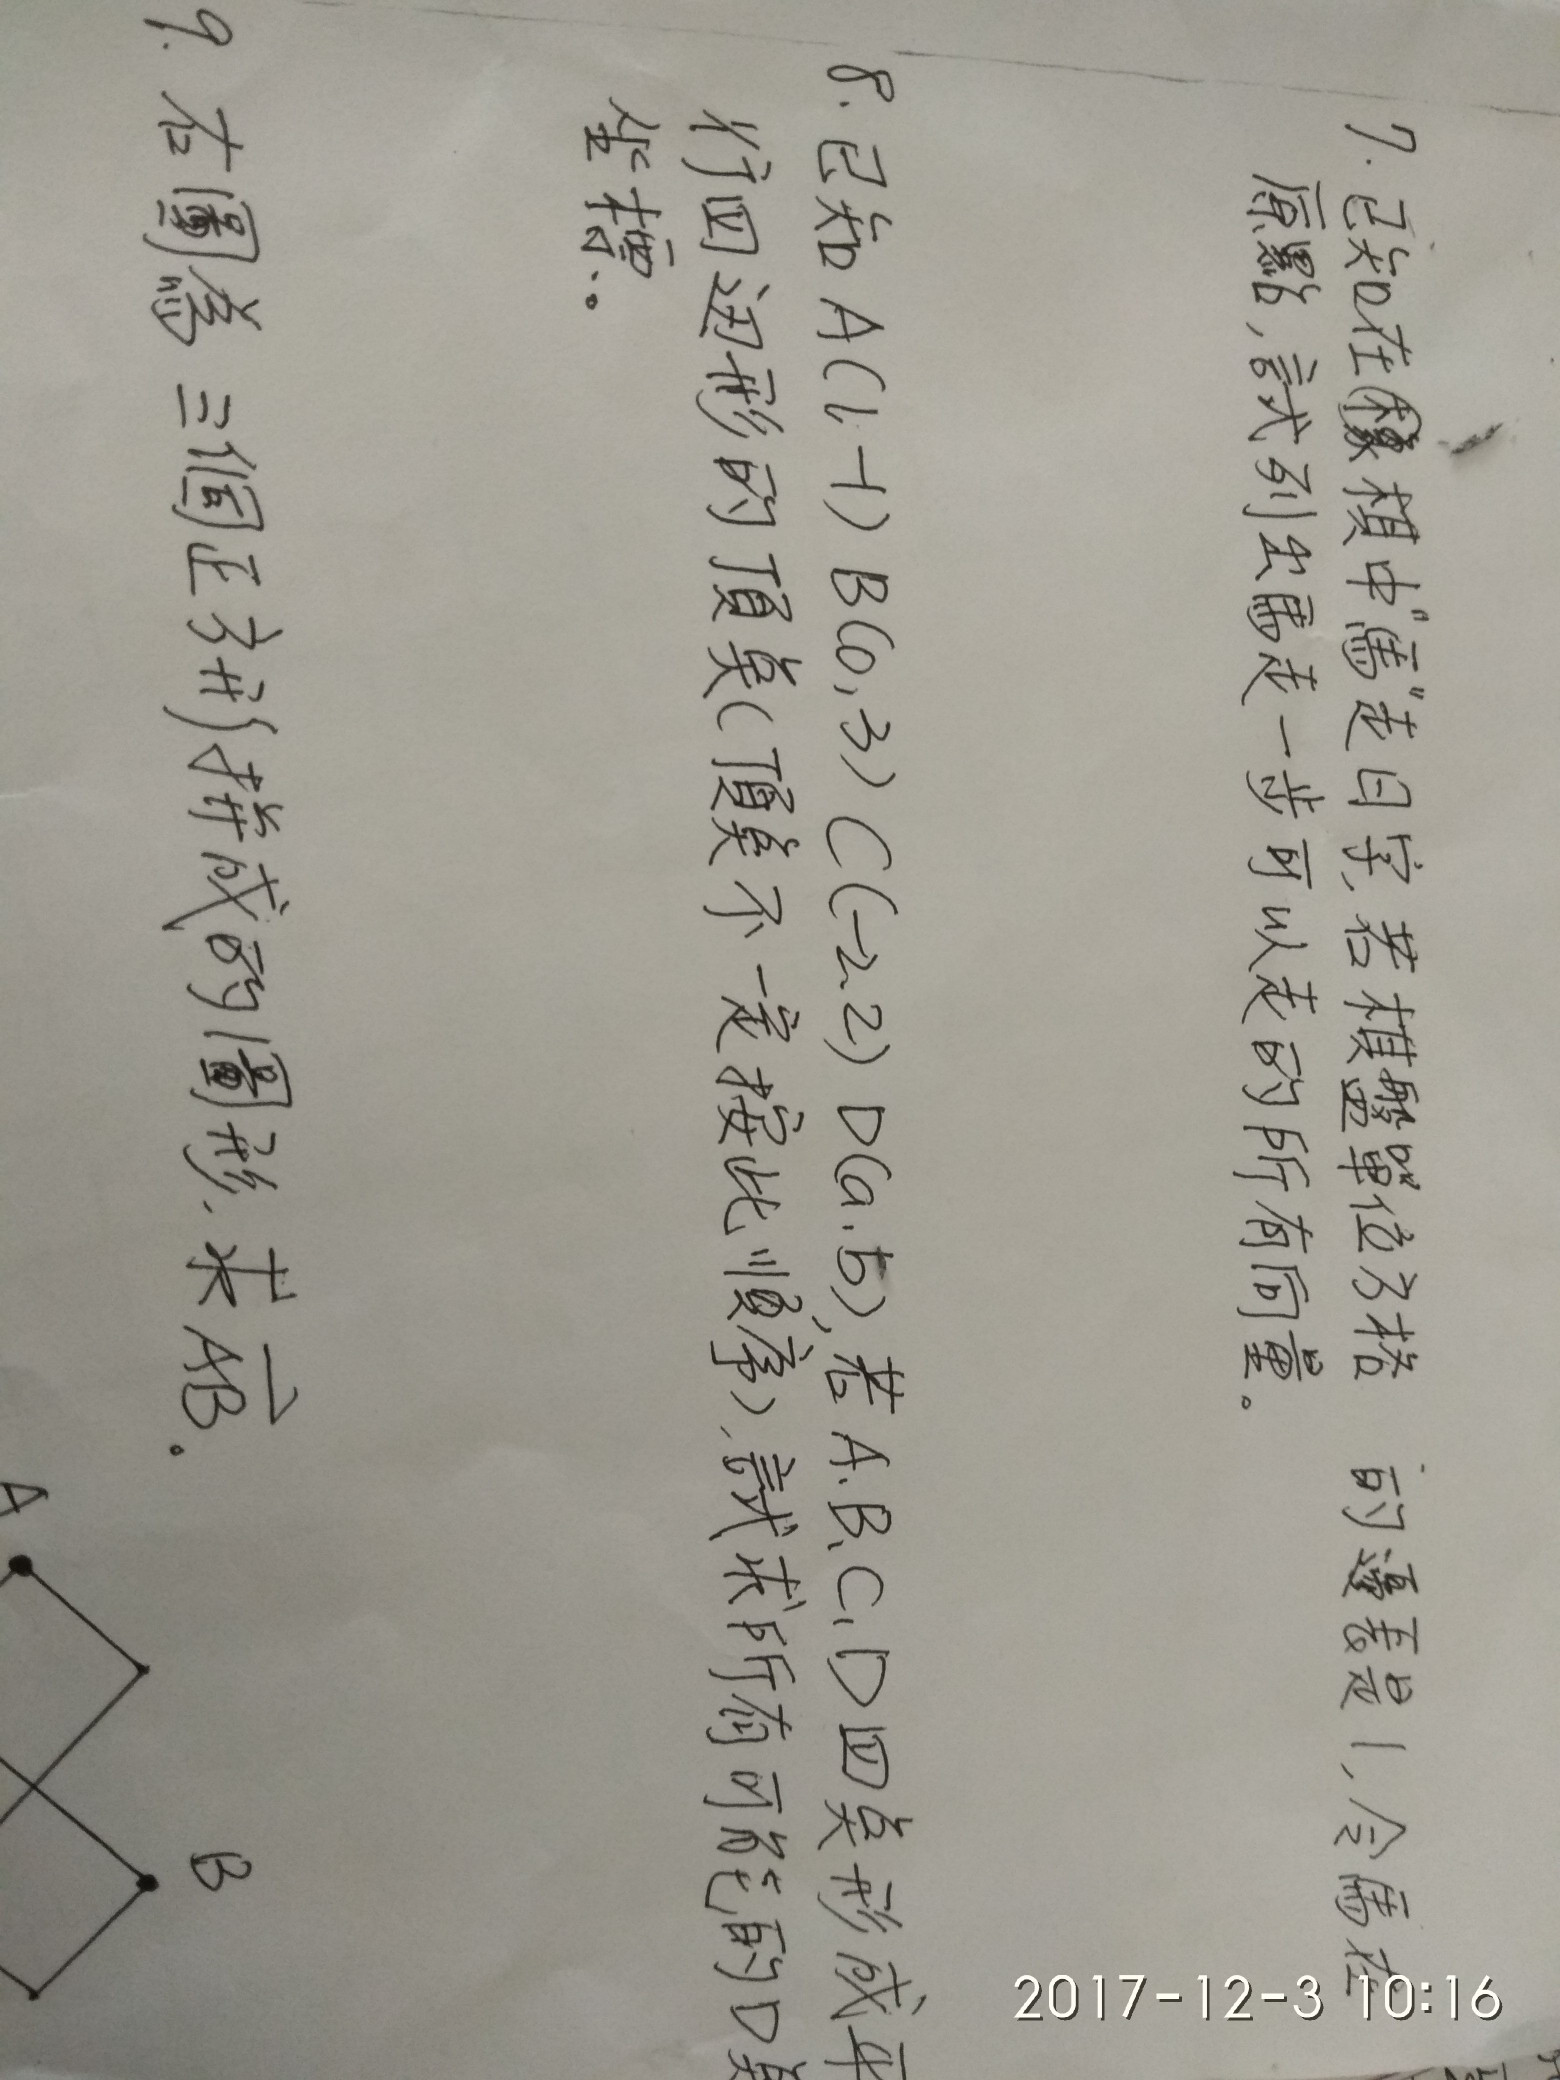 7. 已知在橡棋中"馬"走日字, 若棋盤單位方格 的邊長是1, 今馬在
原點, 試列出馬走一步可以走的所有向量。
8. 已知A(1,-1) B(0,3) C(-2,2) D(a,b), 若A.B.C.D四点形成平
行四边形的頂点(頂点不一定按此順序), 試求所有可能的D点
坐標。
9. 右圖為 三個正方形拼成的圖形, 求AB。
A
B
2017-12-3 10:16